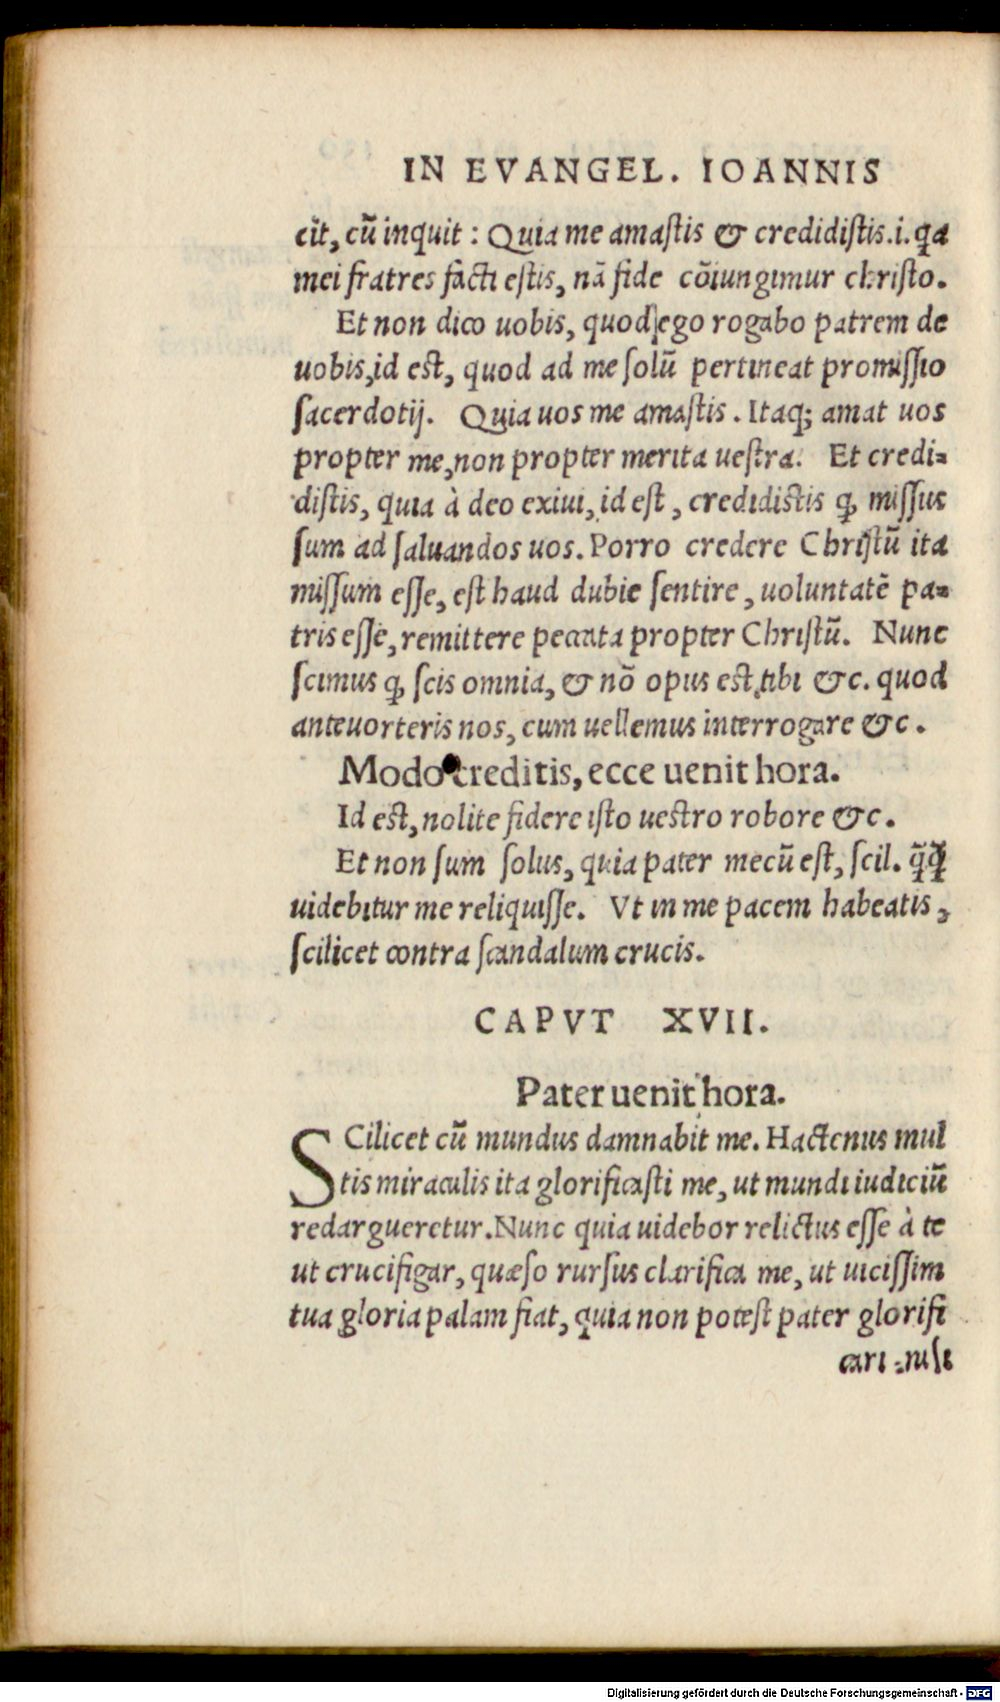 IN EVANGEL. IOANNIS
cit, cū inquit : Quia me amaſtis & credidiſtis .i. qa
mei fratres facti eſtis, nā fide cōiungimur chriſto.
Et non dico uobis, quod ego rogabo patrem de
uobis, id eſt, quod ad me ſolū pertineat promiſſio
ſacerdotij. Quia uos me amaſtis . Itaq; amat uos
propter me, non propter merita ueſtra. Et credi⸗
diſtis, quia à deo exiui, id eſt , credidiſtis ꝙ miſſus
ſum ad ſaluandos uos. Porro credere Chriſtū ita
miſſum eſſe, eſt haud dubie ſentire , uoluntatē pa⸗
tris eſſe, remittere peccata propter Chriſtū. Nunc
ſcimus ꝙ ſcis omnia, & nō opus eſt tibi &c. quod
anteuorteris nos, cum uellemus interrogare &c .
Modo creditis, ecce uenit hora.
Id eſt, nolite fidere iſto ueſtro robore &c .
Et non ſum ſolus, quia pater mecū eſt, ſcil. q̄ꝗ̄
uidebitur me reliquiſſe. Vt in me pacem habeatis ,
ſcilicet contra ſcandalum crucis.
CAPVT XVII.
Pater uenit hora.
SCilicet cū mundus damnabit me. Hactenus mul
tis miraculis ita glorificaſti me, ut mundi iudiciū
redargueretur. Nunc quia uidebor relictus eſſe à te
ut crucifigar, quæſo rurſus clarifica me, ut uiciſſim
tua gloria palam fiat, quia non poteſt pater glorifi
cari niſi
Digitalisierung gefördert durch die Deutsche Forschungsgemeinschaft - DFG